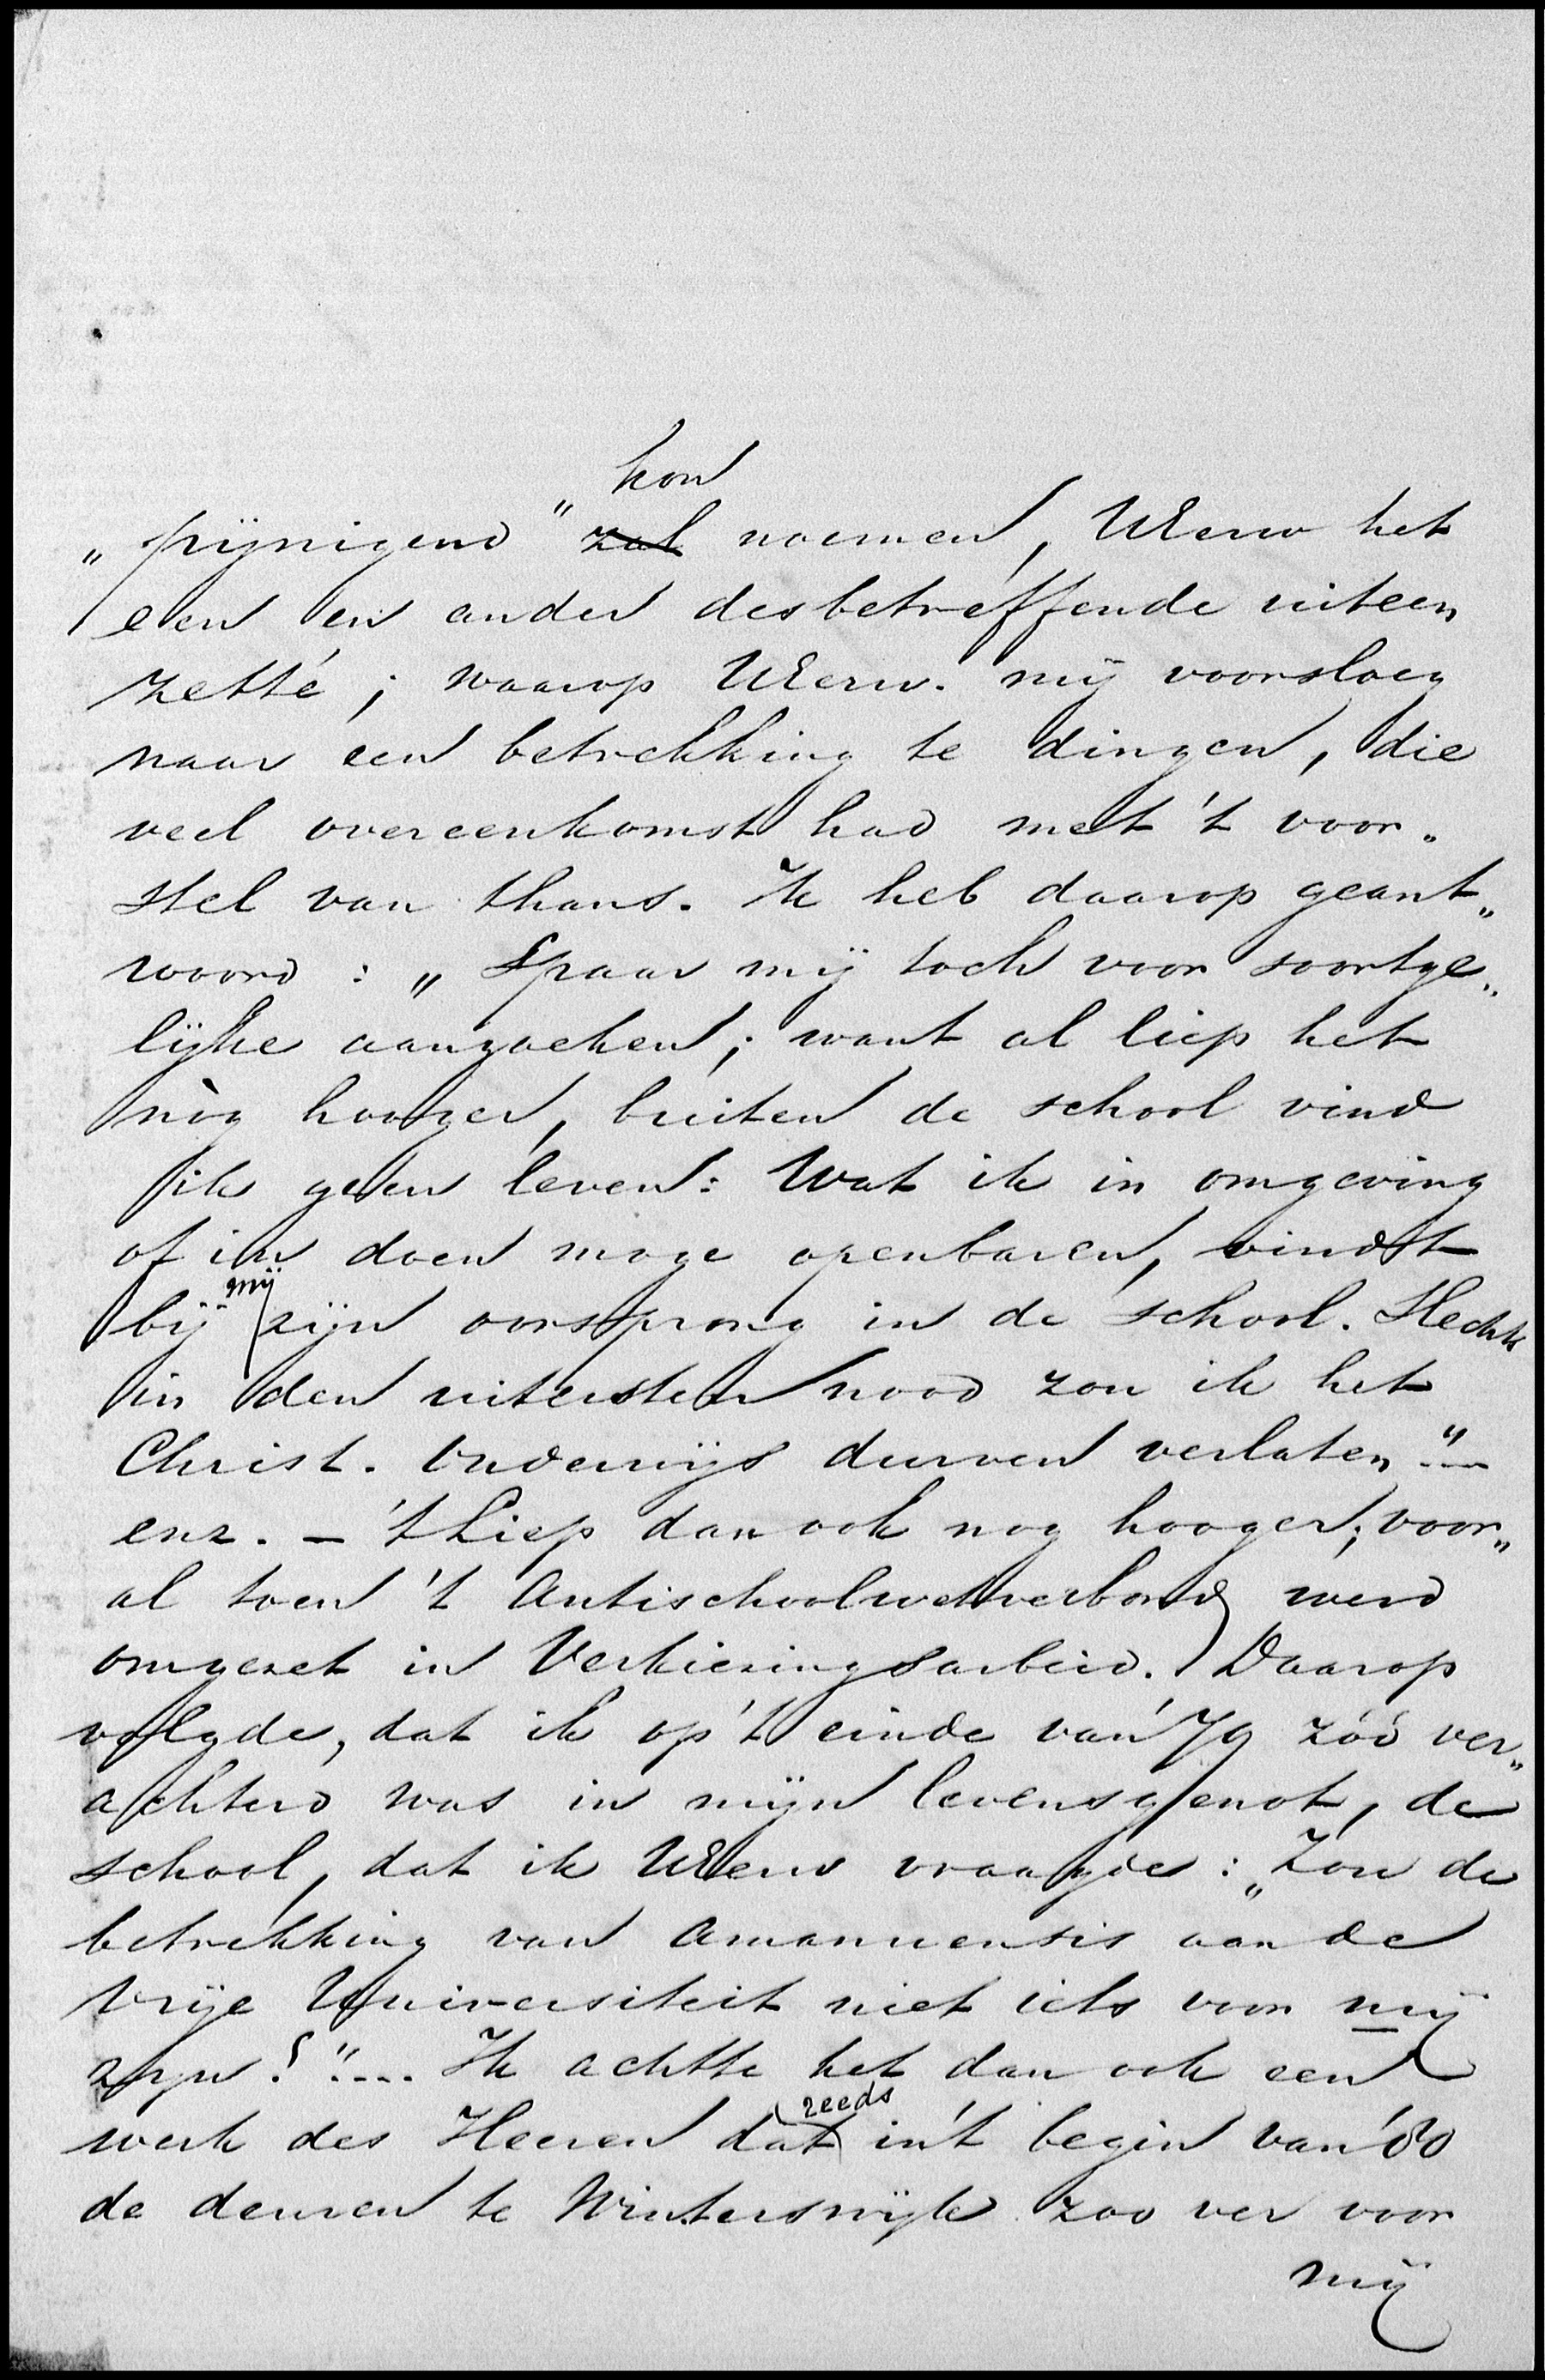 kon
„pijnigend" zal noemen, UEerw het
een en ander desbetreffende uiteen
zette; waarop UEerw. mij voorsloeg
naar een betrekking te dingen, die
veel overeenkomst had met 't voor„
stel van thans. Ik heb daarop geant„
woord: „Spaar mij toch voor soortge„
lijke aanzoeken; want al liep het
nòg hooger, buiten de school vind
ik geen leven: Wat ik in omgeving
of in doen moge openbaren, vindt
bij mij zijn oorsprong in de school. Slechts
in den uitersten nood zou ik het
Christ. Onderwijs durven verlaten"...
enz. – 't Liep dan ook nog hooger; voor„
al toen 't Antischoolwetverbond werd
omgezet in Verkiezingsarbeid. Daarop
volgde, dat ik op 't einde van '79 zóó ver„
achterd was in mijn levensgenot, de
school, dat ik UEerw vraagde: „Zou de
betrekking van Amanuensis aan de
Vrije Universiteit niet iets voor mij
zijn?".... Ik achtte het dan ook een
werk des Heeren dat reeds in 't begin van '80
de deuren te Winterswijk zoo ver voor
mij